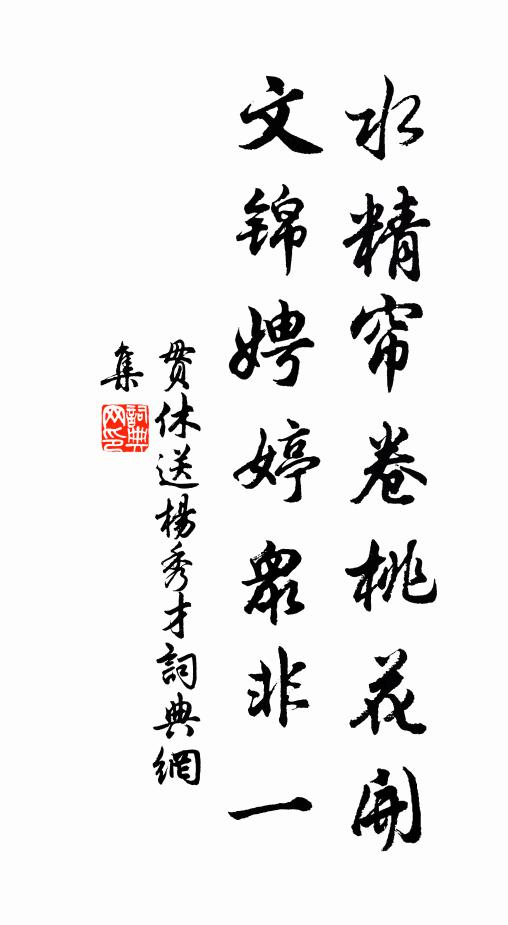 水精帘卷桃花開
文锦娉婷衆非一
贯休送楊秀才詞典網
集
詞典网印